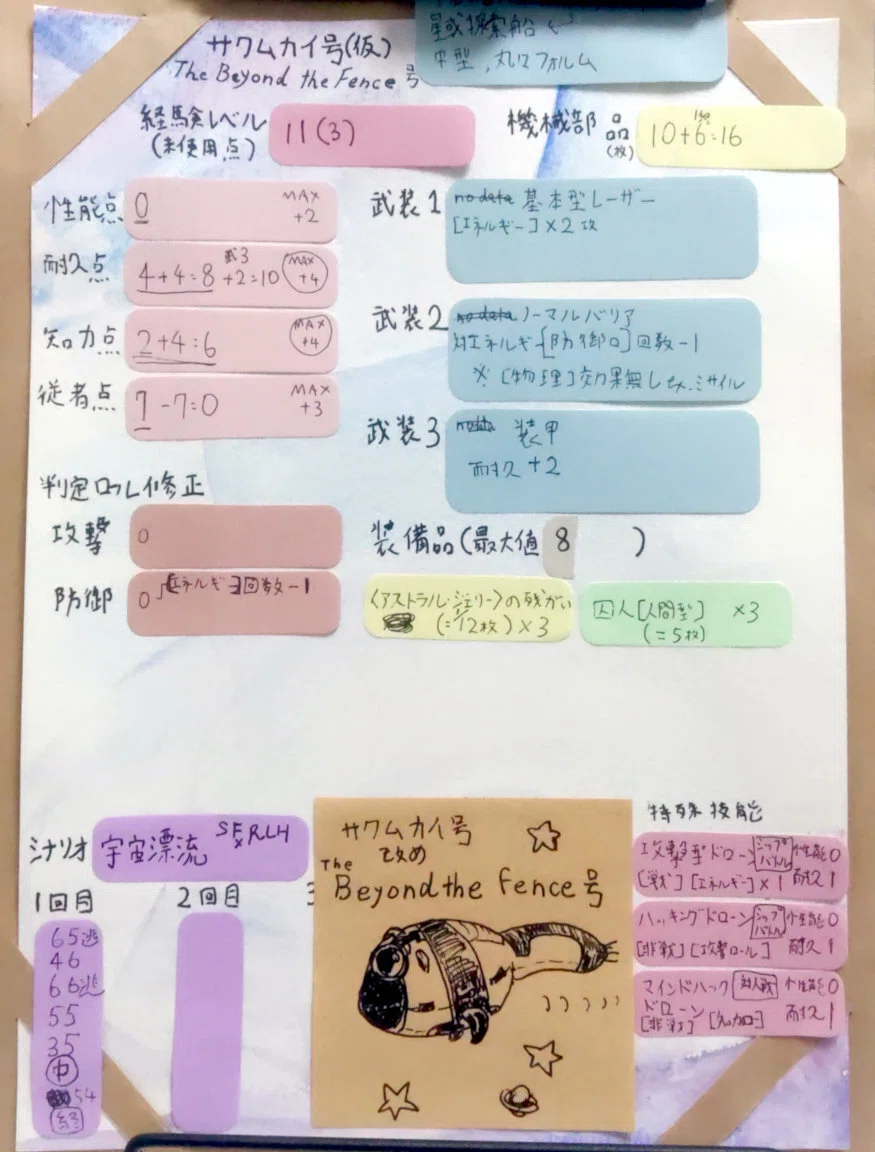 星或探索船
中型,丸いフォルム
サクムカイ号(仮)
The Beyond the Fence 号
経験レベル
(未使用点)
11(3)
機械部品
(枚)
10+6=16
性能点
0
MAX
+2
耐久点
4+4=8 武3 +2=10
MAX
+4
知力点
2+4=6
MAX
+4
従者点
7-7=0
MAX
+3
判定ロール修正
攻撃
0
防御
0 [エネルギー]回数-1
武装1
no data 基本型レーザー
[エネルギー]×2攻
武装2
no data ノーマルバリア
対エネルギー[防御ロ]回数-1
※[物理]効果無し ex.ミサイル
武装3
no data 装甲
耐久+2
装備品(最大値 8 )
〈アストラル・ジェリー〉の残がい
(=1/2枚)×3
囚人[人間型] ×3
(=5枚)
シナリオ
宇宙漂流 SERCH
1回目
65逃
46
66逃
55
35
中
54
終
2回目
3
サクムカイ号
改め
The
Beyond the Fence号
特殊技能
攻撃型ドローン シップバトル 性能0
[戦][エネルギー]×1 耐久1
ハッキングドローン シップバトル 性能0
[非戦][攻撃ロール] 耐久1
マインドハック 対人戦 性能0
ドローン 耐久1
[非戦]